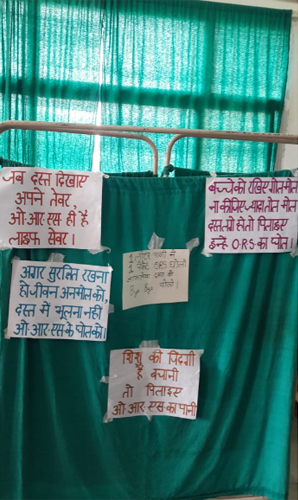 जब दस्त दिखाए
अपने तेवर,
ओ आर एस ही है
लाइफ सेवर।
बच्चे को रखिए गोल मोल
ना कीजिए ज्यादा तोल मोल
दस्त हो तो पिलाइए
इन्हे ORS का घोल।
अगर सुरक्षित रखना
हो जीवन अनमोल को,
दस्त में भूलना नहीं
ओ आर एस के घोल को।
1 लीटर पानी में
1 पैकेट ORS घोलो
Bye Bye बोलो।
शिशु की जिंदगी
है बचानी
तो पिलाइए
ओ आर एस का पानी